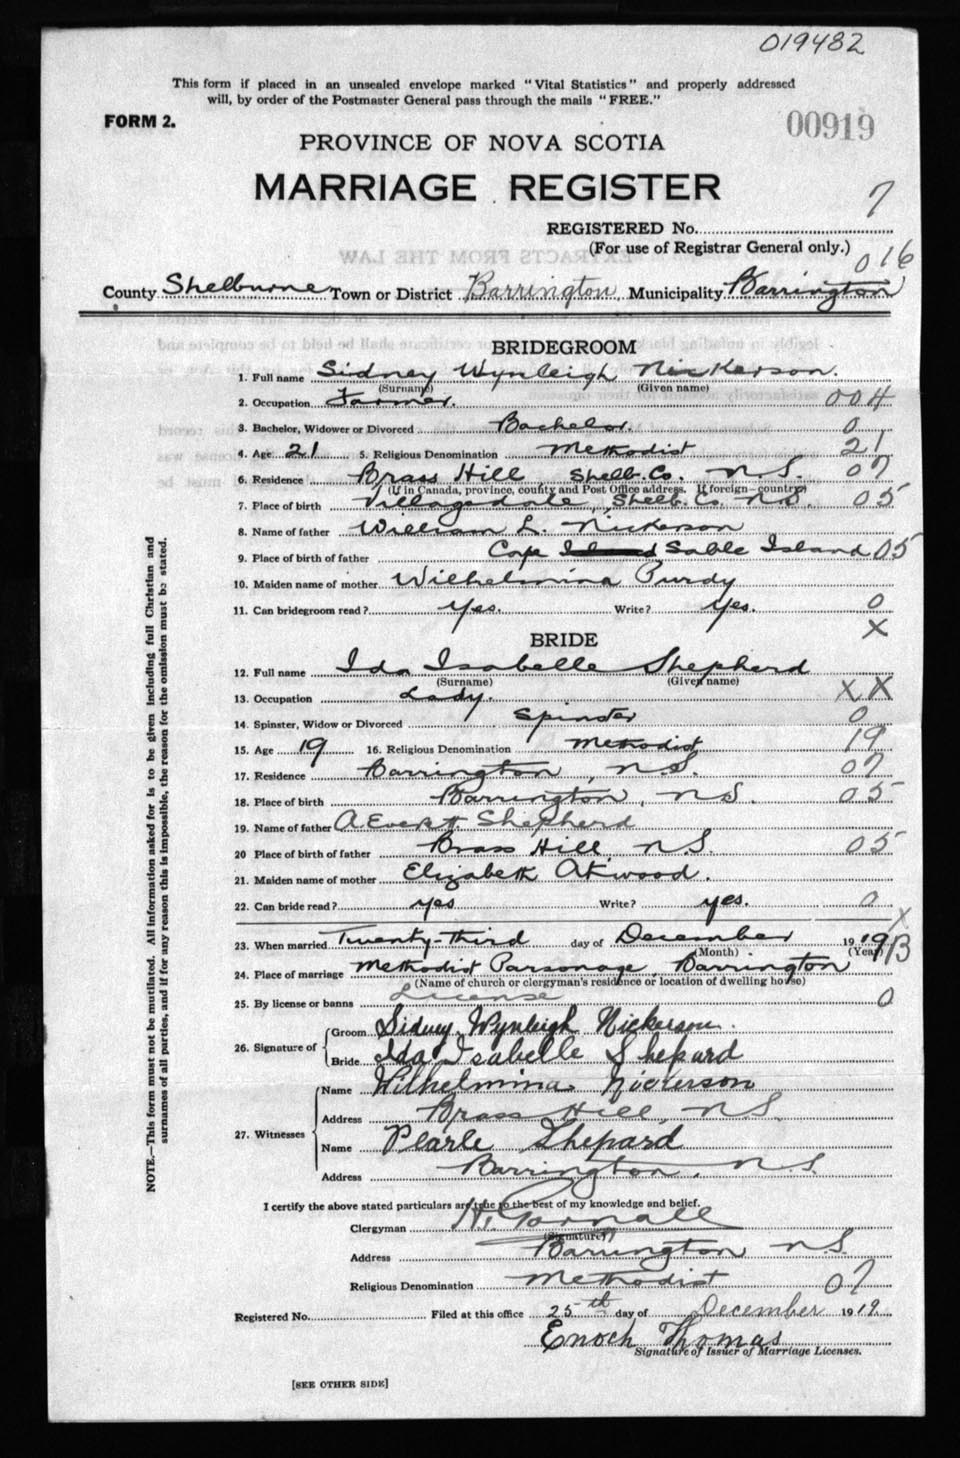 019482
This form if placed in an unsealed envelope marked "Vital Statistics" and properly addressed
will, by order of the Postmaster General pass through the mails "FREE."
FORM 2.
00919
PROVINCE OF NOVA SCOTIA
MARRIAGE REGISTER
7
REGISTERED No.
(For use of Registrar General only.)
016
County Shelburne Town or District Barrington Municipality Barrington
BRIDEGROOM
1. Full name Sidney Wynleigh Nickerson.
(Surname) (Given name)
2. Occupation Farmer. 004
3. Bachelor, Widower or Divorced Bachelor. 0
4. Age 21 5. Religious Denomination Methodist 21
6. Residence Brass Hill Shelb. Co. N.S. 07
(If in Canada, province, county and Post Office address. If foreign—country)
7. Place of birth Villagedale, Shelb. Co. N.S. 05
8. Name of father William L. Nickerson
9. Place of birth of father Cape Island Sable Island 05
10. Maiden name of mother Wilhelmina Purdy
11. Can bridegroom read? Yes. Write? Yes. 0
X
BRIDE
12. Full name Ida Isabelle Shepherd
(Surname) (Given name)
13. Occupation Lady. X X
14. Spinster, Widow or Divorced Spinster 0
15. Age 19 16. Religious Denomination Methodist 19
17. Residence Barrington, N.S. 07
18. Place of birth Barrington, N.S. 05
19. Name of father A. Everett Shepherd
20 Place of birth of father Brass Hill, N.S. 05
21. Maiden name of mother Elizabeth Atwood.
22. Can bride read? yes Write? yes. 0
X
23. When married Twenty-third day of December 1919
(Month) (Year) 13
24. Place of marriage Methodist Parsonage, Barrington
(Name of church or clergyman's residence or location of dwelling house)
25. By license or banns License 0
26. Signature of
Groom Sidney Wynleigh Nickerson.
Bride Ida Isabelle Shepard
27. Witnesses
Name Wilhelmina Nickerson
Address Brass Hill, N.S.
Name Pearle Shepard
Address Barrington, N.S.
I certify the above stated particulars are true to the best of my knowledge and belief.
Clergyman
(Signature)
Address Barrington N.S.
Religious Denomination Methodist 07
Registered No. Filed at this office 25th day of December 1919
Enoch Thomas
Signature of Issuer of Marriage Licenses.
[SEE OTHER SIDE]
NOTE.—This form must not be mutilated. All information asked for is to be given including full Christian and
surnames of all parties, and if for any reason this is impossible, the reason for the omission must be stated.